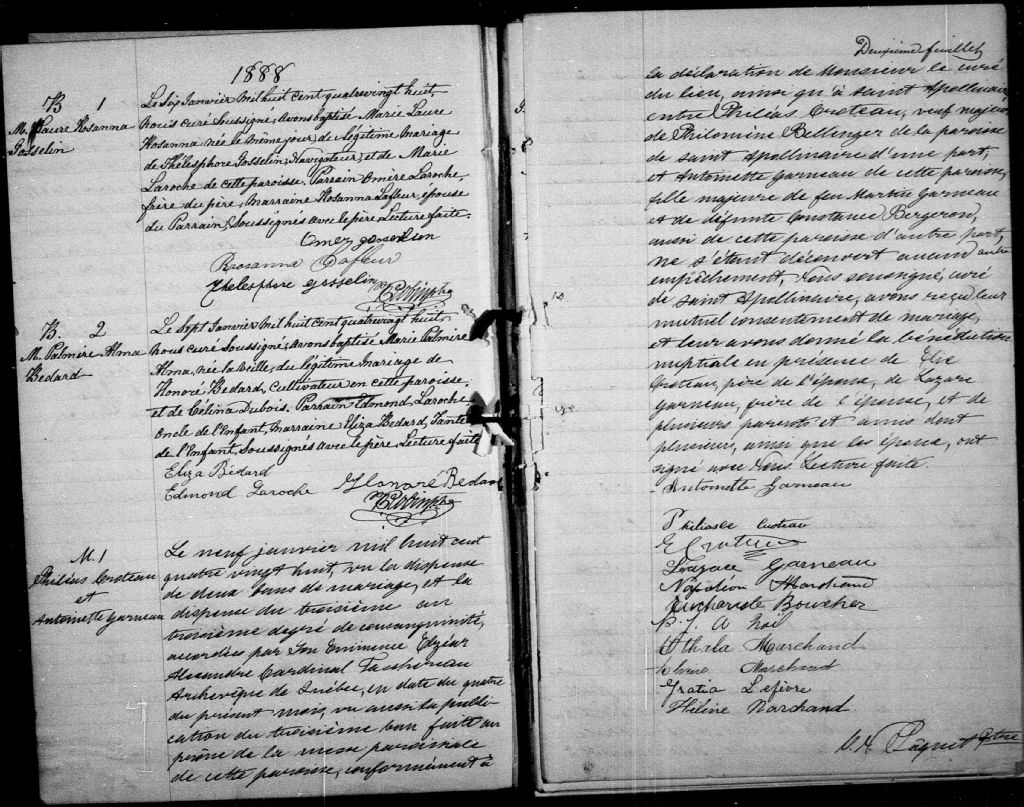 1888
B 1
M. Laure Rosanna
Gosselin
Le Six Janvier Mil huit cent quatrevingt huit,
Nous curé Soussigné, avons baptisé Marie Laure
Rosanna née le même jour, du légitime Mariage
de Thélesphore Gosselin, Navigateur, et de Marie
Laroche de cette paroisse. Parrain Omère Laroche,
frère du père, Marraine Rosanna Lafleur, épouse
du Parrain, Soussignés avec le père, Lecture faite.
Omer gosselin
Rosanna Lafleur
Thelesphore gosselin
B. 2
M. Palmère Alma
Bedard
Le Sept Janvier Mil huit cent quatrevingt huit,
Nous curé Soussigné, avons baptisé Marie Palmère
Alma, née la veille, du légitime Mariage de
Honoré Bedard, Cultivateur en cette paroisse,
et de Célina Dubois. Parrain Edmond Laroche
Oncle de l'Enfant, Marraine Eliza Bedard, Tante
de l'Enfant, Soussignés avec le père, Lecture faite
Eliza Bédard
Edmond Laroche Honoré Bedard
M. 1
Philéas Croteau
et
Antoinette Garneau
Le neuf janvier mil huit cent
quatre vingt huit, vu la dispense
de deux bans de mariage, et la
dispense du troisième au
troisième degré de consanguinité,
accordées par Son Eminence Elzéar
Alexandre Cardinal Taschereau
Archevêque de Québec, en date du quatre
du présent mois, vu aussi la publi-
cation du troisième ban faite au
prône de la messe paroissiale
de cette paroisse, conformément à
Deuxième feuillet
la déclaration de Monsieur le curé
du lieu, ainsi qu'à Saint Apollinaire
entre Philéas Croteau, veuf majeur
de Philomène Bellenger de la paroisse
de Saint Apollinaire d'une part,
et Antoinette Garneau de cette paroisse,
fille majeure de feu Martin Garneau
et de défunte Constance Bergeron,
aussi de cette paroisse d'autre part,
ne s'étant découvert aucun autre
empêchement, Nous sousigné, curé
de Saint Apollinaire, avons reçu leur
mutuel consentement de mariage,
et leur avons donné la bénédiction
nuptiale en présence de
Croteau, père de l'époux, de Lazare
Garneau, frère de l'épouse, et de
plusieurs parents et amis dont
plusieurs, ainsi que les époux, ont
signé avec Nous. Lecture faite.
Antoinette Garneau
Croteau
E Croteau
Lazare Garneau
Napoléon Marchand
Boucher
Marchand
Marchand
Gratia Lefèvre
Hélène Marchand
Paquet Ptre